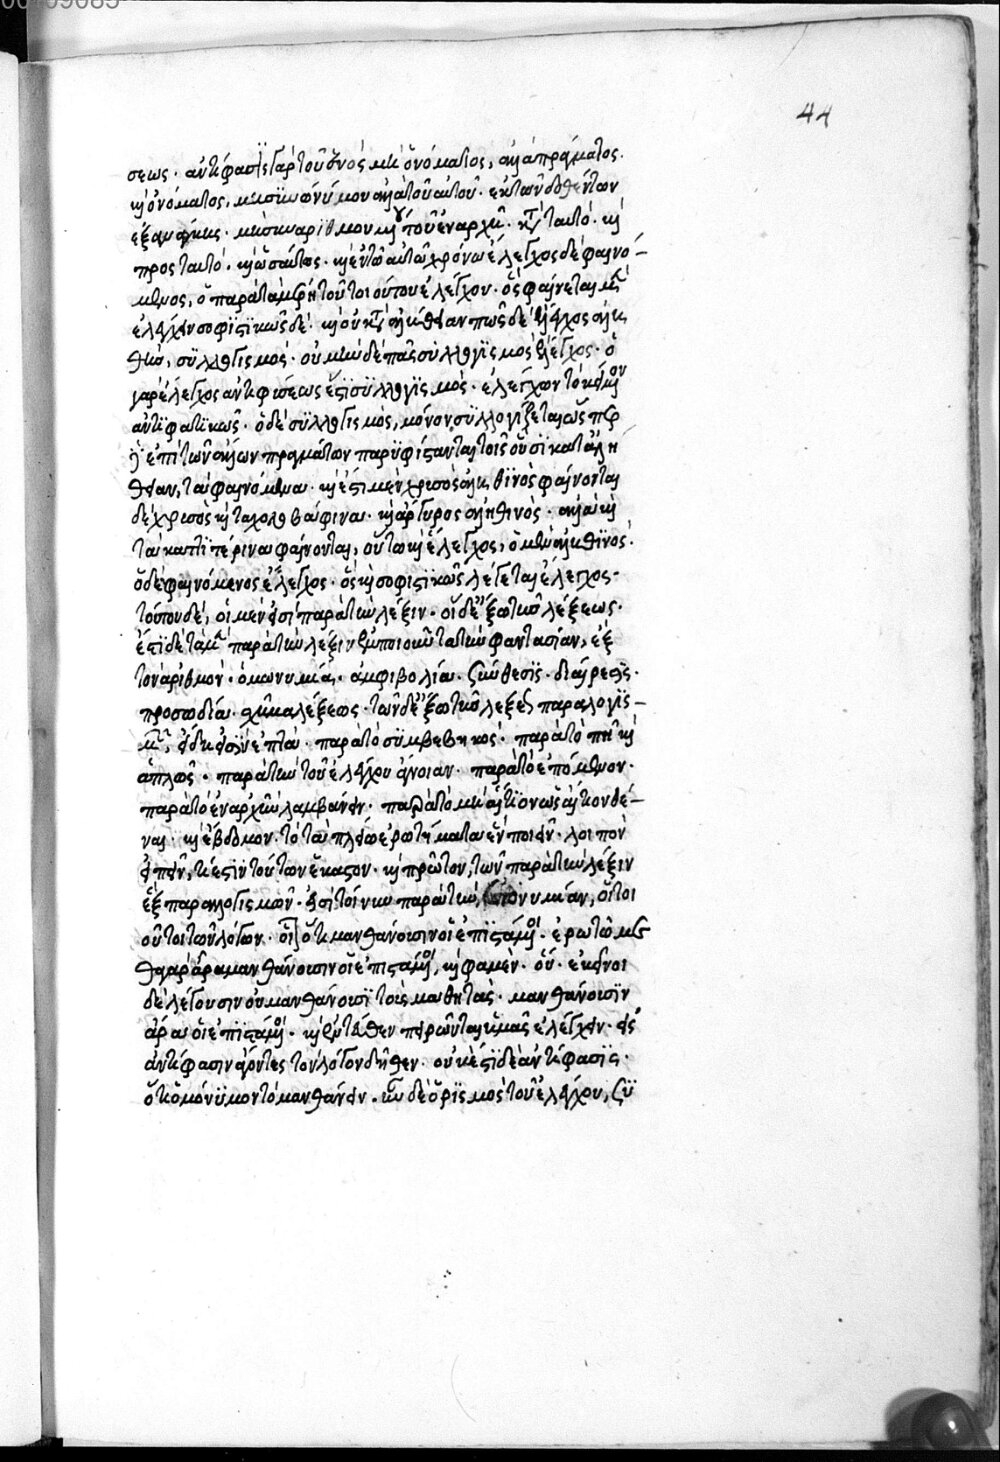 44
σεως. ἀντίφασϊς γὰρ τοῦ ἑνὸς μὴ ὀνόματος, ἀλλὰ πράγματος.
καὶ ὀνόματος, μὴ συνωνύμου ἀλλὰ τοῦ αὐτοῦ. ἐκ τῶν δοθέντων
ἐξ ἀνάγκης. μὴ συναριθμουμένου τοῦ ἐν ἀρχῇ. κατὰ ταυτό. καὶ
πρὸς ταυτό. καὶ ὡσαύτως. καὶ ἐν τῷ αὐτῷ χρόνω ἔλεγχος δὲ φαινό-
μενος, ὁ παρὰ τὰ μέρη τούτοι οὑτουελέγχου. ὃς φαίνεται μὲν
ἐλέγχειν σοφϊστϊκῶς δέ. καὶ οὐ κατὰ ἀλήθειαν πῶς δὲ ἔλεγχος ἀλη
θὴς, συλλογισμός. οὐ μὴν δὲ πᾶς συλλογϊσμὸς ἔλεγχος. ὁ
γὰρ ἔλεγχος ἀντιφάσεως ἐστϊ συλλογϊσμός. ἐλέγχων τὸ κείμενον
ἀντϊφατϊκῶς. ὁ δὲ συλλογισμὸς, μόνον συλλογίζεται ὥσπερ
γὰρ ἐπὶ τῶν ἄλλων πραγμάτων παρυφίστανται τοῖς οὖσϊ κατ' ἀλή
θειαν, τὰ φαινόμενα. καὶ ἔστι μὲν χρισὸς ἀληθϊνὸς φαίνονται
δὲ χρισὸς καὶ τὰ χολοβάφινα. καὶ ἄργυρος ἀληθινὸς. ἀλλὰ καὶ
τὰ καττϊτέρινα φαίνονται, οὕτω καὶ ἔλεγχος, ὁ μὲν ἀληθϊνός.
ὁ δὲ φαινόμενος ἔλεγχος. ὃς καὶ σοφιστϊκῶς λέγεται ἔλεγχος.
τόπου δὲ, οἱ μέν εἰσϊ παρὰ τὴν λέξιν. οἱ δὲ ἔξω τῆς λέξεως.
ἔστϊ δὲ τὰ μὲν παρὰ τὴν λέξιν ἐμποιοῦντα τὴν φαντασίαν, ἓξ
τὸν ἀριθμόν. ὁμωνυμία. ἀμφιβολία. σύνθεσϊς. διαίρεσϊς.
προσωδία. σχῆμα λέξεως. τῶν δὲ ἔξω τῆς λέξεως παραλογϊσ-
μῶν, εἴδη εἰσὶν ἑπτά. παρὰ τὸ συμβεβηκός. παρὰ τὸ πῆ καὶ
ἁπλῶς. παρὰ τὴν τοῦ ἐλέγχου ἄγνοιαν. παρὰ τὸ ἑπόμενον.
παρὰ τὸ ἐν ἀρχῇ λαμβάνειν. παρὰ τὸ μὴ αἴτϊον ὡς αἴτιον θεῖ-
ναι. καὶ ἕβδομον. τὸ τὰ πλείω ἐρωτήματα ἓν ποιεῖν. λοιπὸν
εἰπεῖν, τί ἐστὶν τούτων ἕκαστον. καὶ πρῶτον, τῶν παρὰ τὴν λέξιν
ἓξ παραλογισμῶν. εἰσὶ τοίνυν παρὰ τὴν ὁμωνυμίαν, οἵ τοι
οὗτοι τῶν λόγων. οἷον ὅτι μανθάνουσιν οἱ ἐπϊστάμενοι. ἐρωτῶμεν
γὰρ ἆρα μανθάνουσιν οἱ ἐπιστάμενοι, καὶ φαμὲν. οὔ. ἐκεῖνοι
δὲ λέγουσιν οὐ μανθάνουσϊ τοὺς μαθητάς. μανθάνουσϊν
ἄρα οἱ ἐπϊστάμενοι. καὶ ἐντεῦθεν πειρῶνται ἡμᾶς ἐλέγχειν. εἰς
ἀντίφασιν ἄγοντες τὸν λόγον δῆθεν. οὐκ ἔστϊ δὲ ἀντίφασϊς.
ὅτι ὁμόνυμον τὸ μανθάνειν. ἦν δὲ ὁρϊσμὸς τοῦ ἐλέγχου, συ